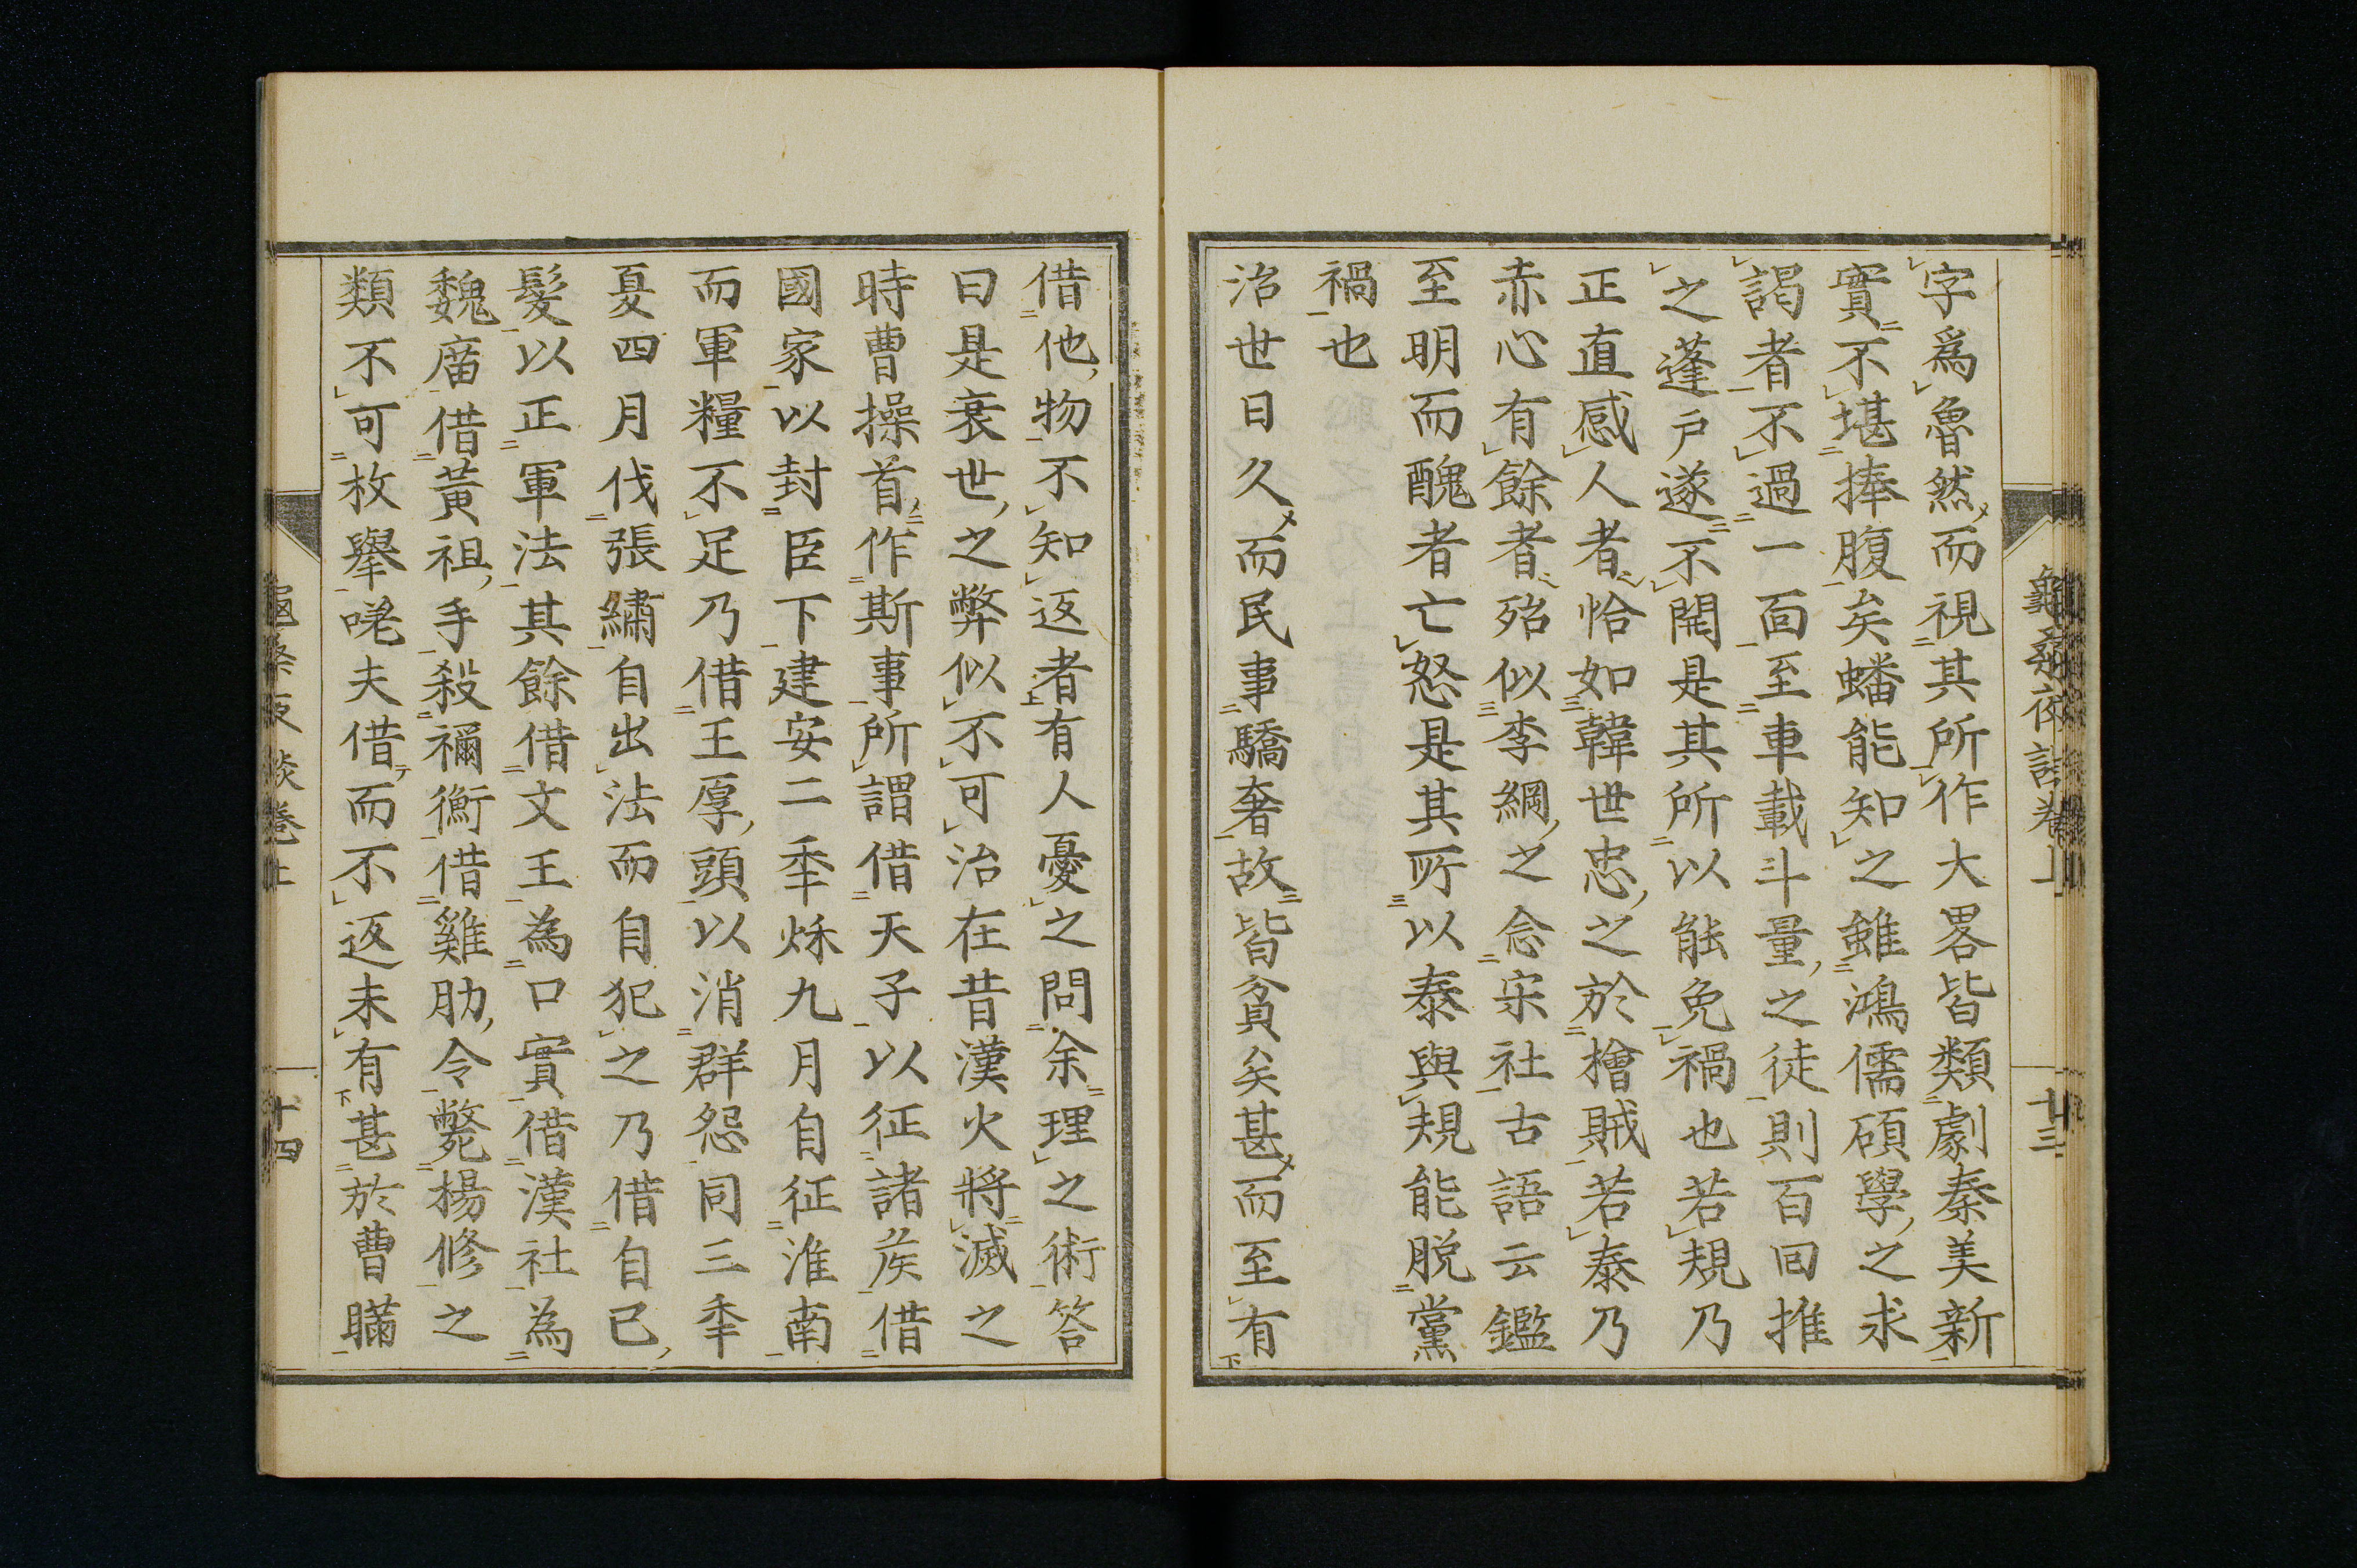 龜桑夜話卷上
十三
字爲魯然而視其所作大畧皆類劇秦美新
實不堪捧腹矣蟠能知之雖鴻儒碩學之求
謁者不過一面至車載斗量之徒則百回推
之蓬戶遂不開是其所以能免禍也若規乃
正直感人者恰如韓世忠之於檜賊若泰乃
赤心有餘者殆似李綱之念宋社古語云鑑
至明而醜者亡怒是其所以泰與規能脫黨
禍也
治世日久而民事驕奢故皆貧矣甚而至有
借他物不知返者有人憂之問余理之術答
曰是衰世之弊似不可治在昔漢火將滅之
時曹操首作斯事所謂借天子以征諸矦借
國家以封臣下建安二秊烁九月自征淮南
而軍糧不足乃借王厚頭以消群怨同三秊
夏四月伐張繡自出法而自犯之乃借自己
髮以正軍法其餘借文王為口實借漢社為
魏廟借黃祖手殺禰衡借雞肋令斃楊修之
類不可枚擧唴夫借而不返未有甚於曹瞞
十四